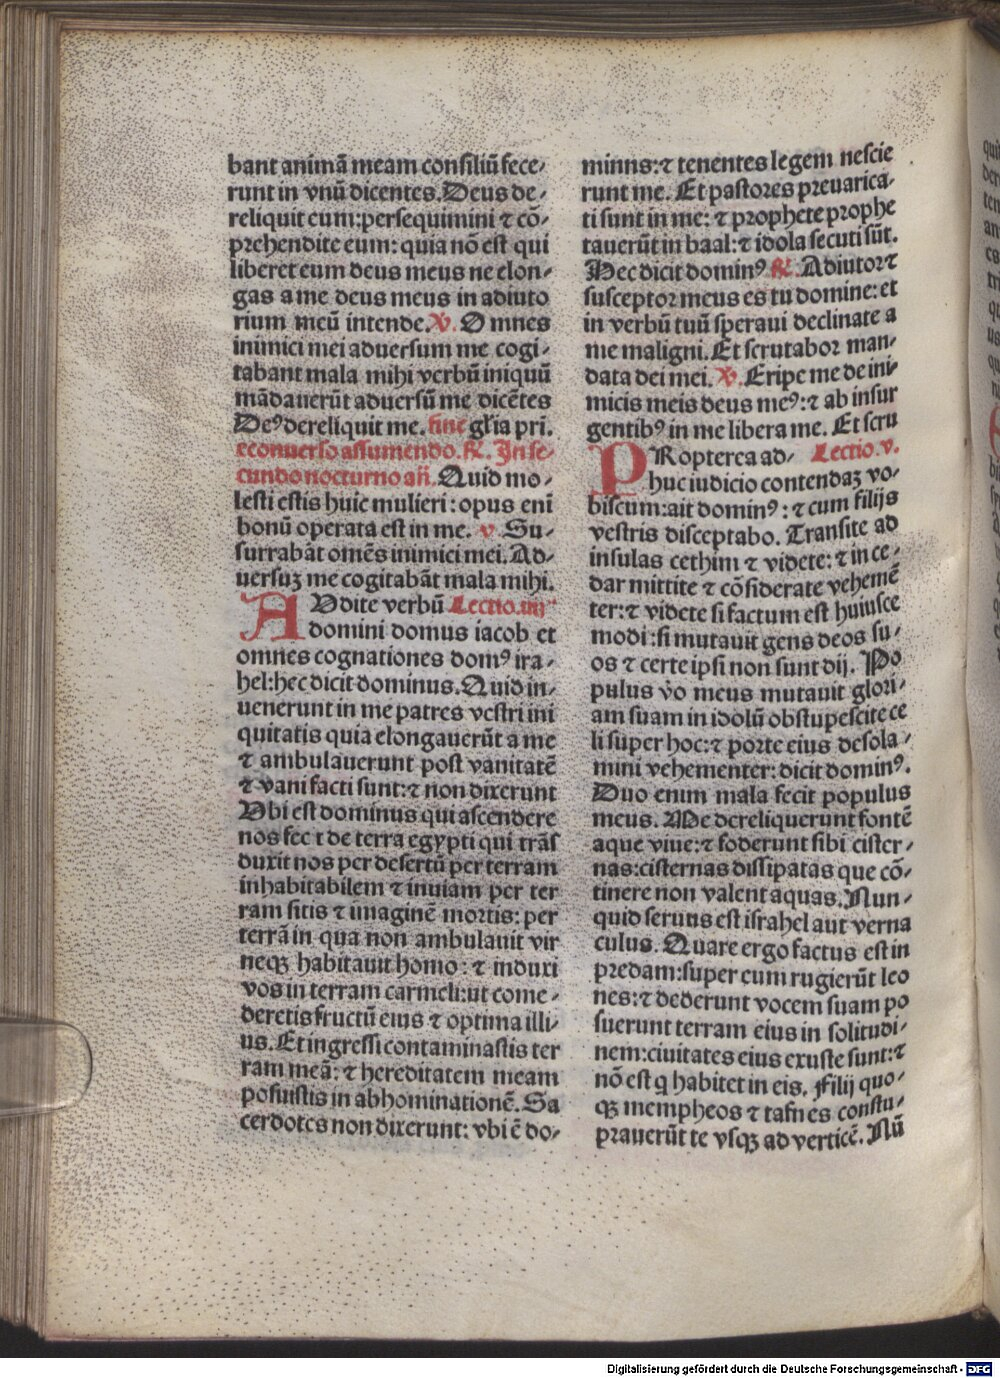 bant animā meam consiliū fece⸗
runt in vnū dicentes. Deus de⸗
reliquit eum: persequimini ⁊ cō⸗
prehendite eum: quia nō est qui
liberet eum deus meus ne elon⸗
gas a me deus meus in adiuto
rium meū intende. ℣. Omnes
inimici mei aduersum me cogi⸗
tabant mala mihi verbū iniquū
mādauerūt aduersū me dicētes
Deꝰ dereliquit me. sine gl'ia pri.
econuerso assumendo. ℟. In se⸗
cundo nocturno añ. Quid mo⸗
lesti estis huic mulieri: opus eni
bonū operata est in me. v. Su⸗
surrabāt omēs inimici mei. Ad⸗
uersuꝫ me cogitabāt mala mihi.
AVdite verbū Lectio.iiij
domini domus iacob et
omnes cognationes domꝰ isra⸗
hel: hec dicit dominus. Quid in⸗
uenerunt in me patres vestri ini
quitatis quia elongauerūt a me
⁊ ambulauerunt post vanitatē
⁊ vani facti sunt: ⁊ non dixerunt
Vbi est dominus qui ascendere
nos fecit de terra egypti qui trās
duxit nos per desertū per terram
inhabitabilem ⁊ inuiam per ter
ram sitis ⁊ imaginē mortis: per
terrā in qua non ambulauit vir
neqꝫ habitauit homo: ⁊ induxi
vos in terram carmeli: ut come⸗
deretis fructū eius ⁊ optima illi⸗
us. Et ingressi contaminastis ter
ram meā: ⁊ hereditatem meam
posuistis in abhominationē. Sa
cerdotes non dixerunt: vbi ē do⸗
minns: ⁊ tenentes legem nescie
runt me. Et pastores preuarica⸗
ti sunt in me: ⁊ prophete prophe
tauerūt in baal: ⁊ idola secuti sūt.
Hec dicit dominꝰ ℟. Adiutor ⁊
susceptor meus es tu domine: et
in verbū tuū speraui declinate a
me maligni. Et scrutabor man⸗
data dei mei. ℣. Eripe me de ini⸗
micis meis deus meꝰ: ⁊ ab insur
gentibꝰ in me libera me. Et scru
PRopterea ad⸗ Lectio.v.
huc iudicio contendaꝫ vo⸗
biscum: ait dominꝰ: ⁊ cum filijs
vestris disceptabo. Transite ad
insulas cethim ⁊ videte: ⁊ in ce⸗
dar mittite ⁊ cōsiderate vehemē
ter: ⁊ videte si factum est huiusce
modi: si mutauit gens deos su⸗
os ⁊ certe ipsi non sunt dij. Po
pulus vo meus mutauit glori⸗
am suam in idolū obstupescite ce
li super hoc: ⁊ porte eius desola⸗
mini vehementer: dicit dominꝰ.
Duo enim mala fecit populus
meus. Me dereliquerunt fontē
aque viue: ⁊ foderunt sibi cister⸗
nas: cisternas dissipatas que cō⸗
tinere non valent aquas. Nun⸗
quid seruus est israhel aut verna
culus. Quare ergo factus est in
predam: super eum rugierūt leo
nes: ⁊ dederunt vocem suam po
suerunt terram eius in solitudi⸗
nem: ciuitates eius exuste sunt: ⁊
nō est q habitet in eis. Filij quo⸗
qꝫ mempheos ⁊ tafnes constu⸗
prauerūt te vsqꝫ ad verticē. Nū
Digitalisierung gefördert durch die Deutsche Forschungsgemeinschaft - DFG